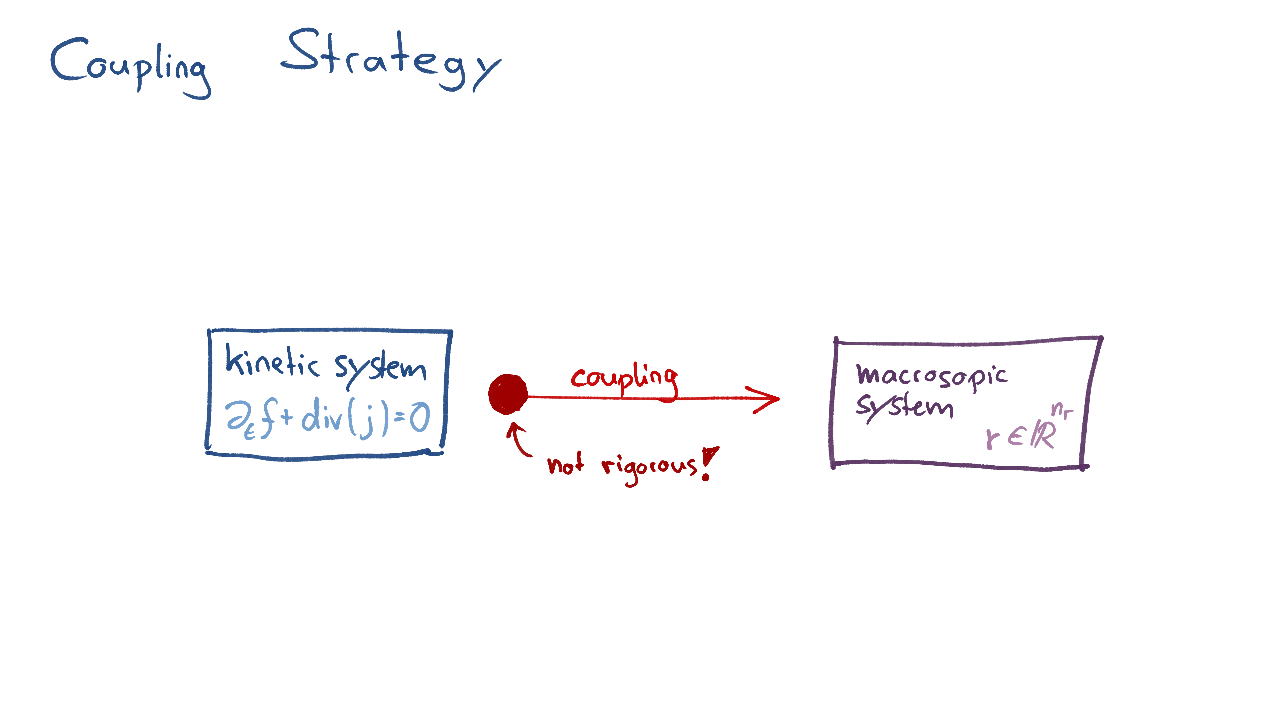 Coupling Strategy
kinetic system
∂ₜf + div(j) = 0
coupling
not rigorous!
macrosopic
system
r ∈ ℝ^{n_r}